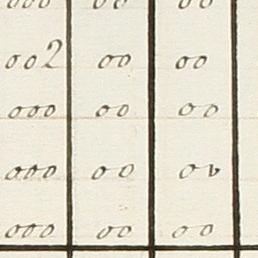 000 00 00
002 00 00
000 00 00
000 00 00
000 00 00